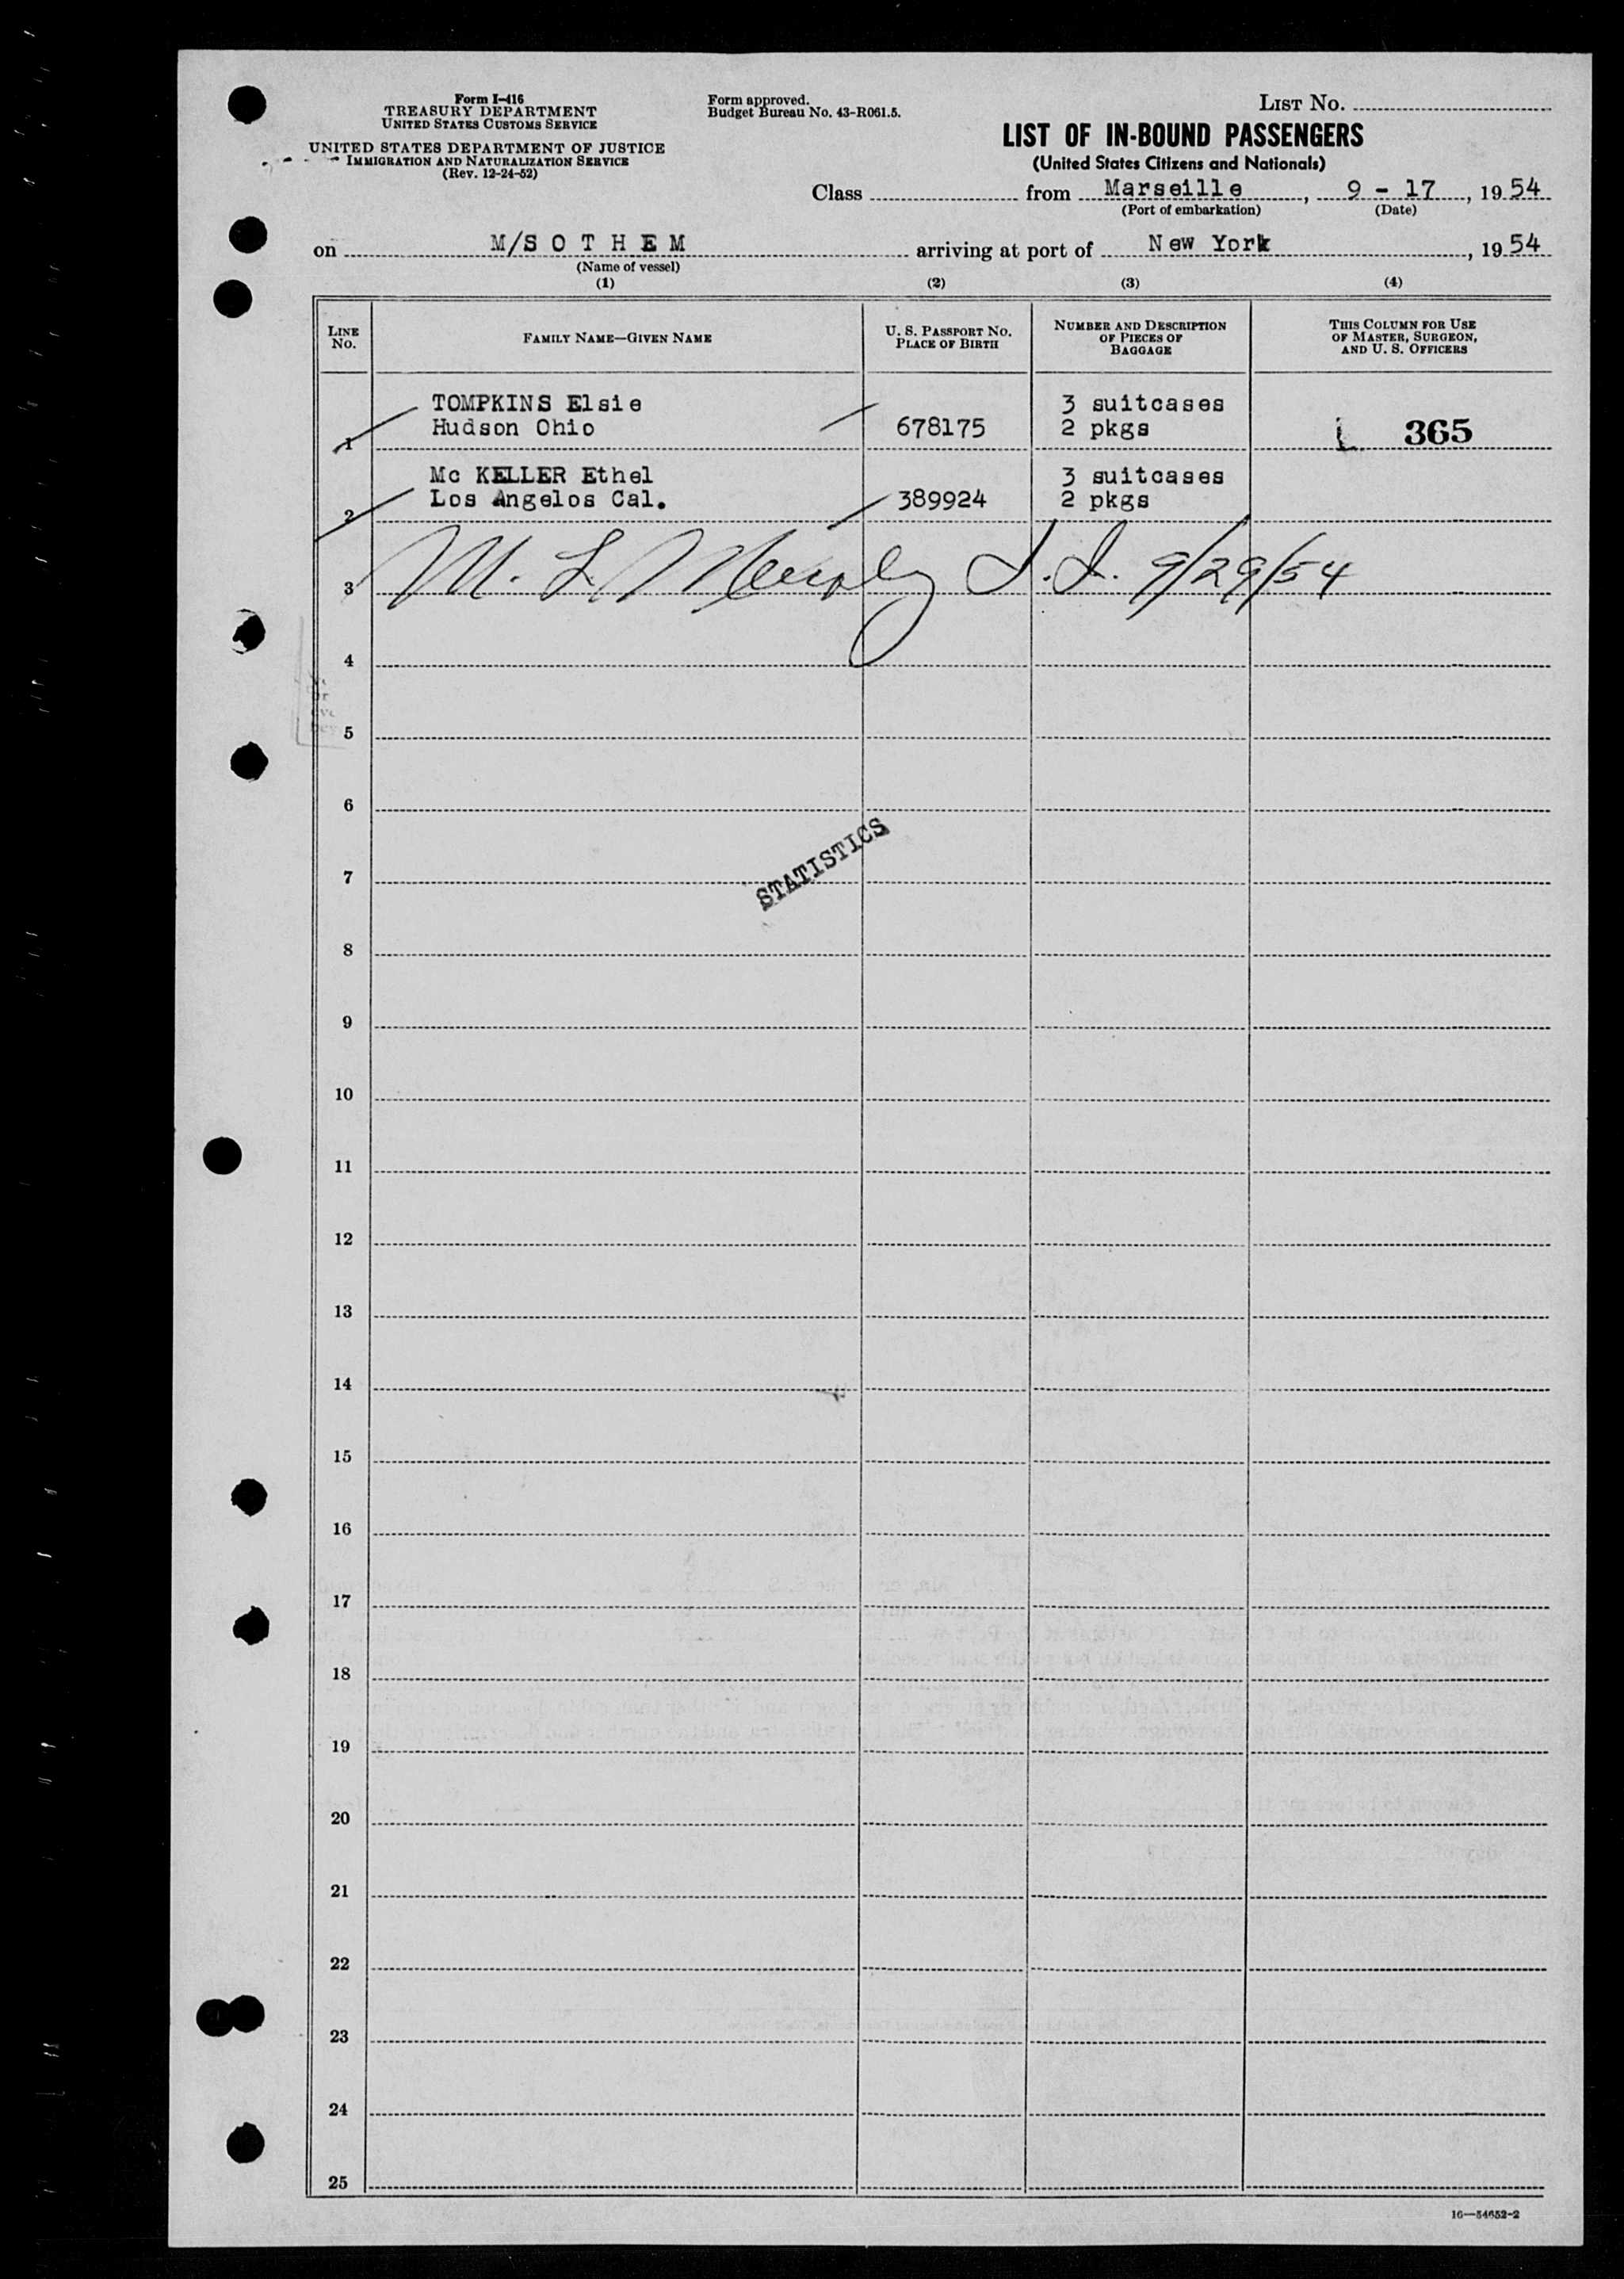 Form I-416
TREASURY DEPARTMENT
UNITED STATES CUSTOMS SERVICE
UNITED STATES DEPARTMENT OF JUSTICE
IMMIGRATION AND NATURALIZATION SERVICE
(Rev. 12-24-52)
Form approved.
Budget Bureau No. 43-R061.5.
LIST NO.
LIST OF IN-BOUND PASSENGERS
(United States Citizens and Nationals)
Class from Marseille, 9 - 17, 1954
(Port of embarkation) (Date)
on M/S O T H E M arriving at port of New York, 1954
(Name of vessel)
(1) (2) (3) (4)
LINE NO. FAMILY NAME—GIVEN NAME U. S. PASSPORT NO. PLACE OF BIRTH NUMBER AND DESCRIPTION OF PIECES OF BAGGAGE THIS COLUMN FOR USE OF MASTER, SURGEON, AND U. S. OFFICERS
TOMPKINS Elsie 3 suitcases
1 Hudson Ohio 678175 2 pkgs 365
Mc KELLER Ethel 3 suitcases
2 Los Angelos Cal. 389924 2 pkgs
3 M. L. Murphy I.I. 9/29/54
4
5
6
STATISTICS
7
8
9
10
11
12
13
14
15
16
17
18
19
20
21
22
23
24
25
16—54652-2